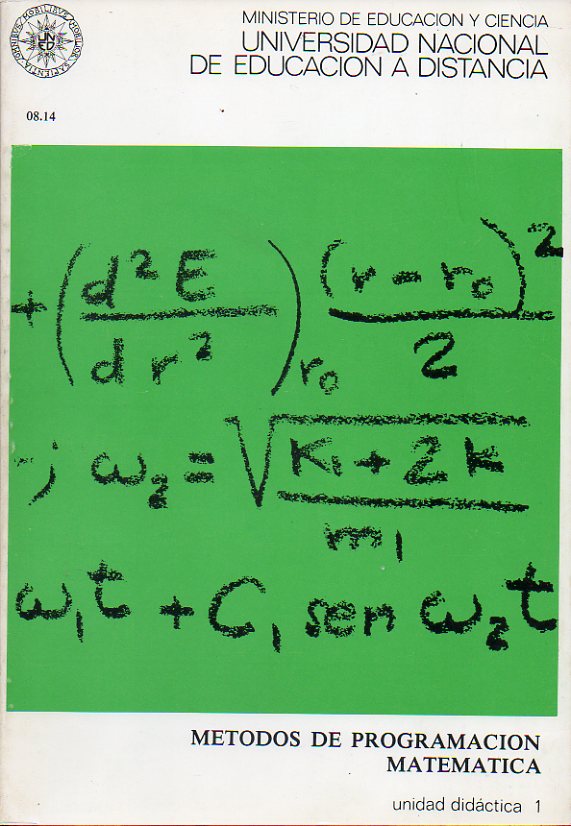 MINISTERIO DE EDUCACION Y CIENCIA
UNIVERSIDAD NACIONAL
DE EDUCACION A DISTANCIA
OMNIBVS MOBILIBVS MOBILIOR SAPIENTIA
UNED
08.14
+(d²E/dr²)r₀ (r-r₀)²/2
; ω₂ = √(K₁+2k/m₁)
ω₁t + C₁ sen ω₂t
METODOS DE PROGRAMACION
MATEMATICA
unidad didáctica 1